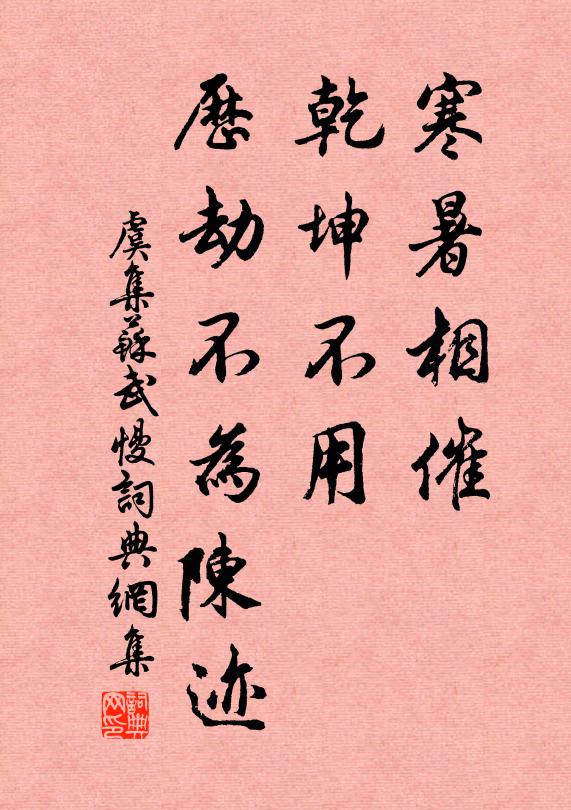 寒暑相催
乾坤不用
歷劫不為陳迹
虞集蘇武慢詞典網集
詞典网印